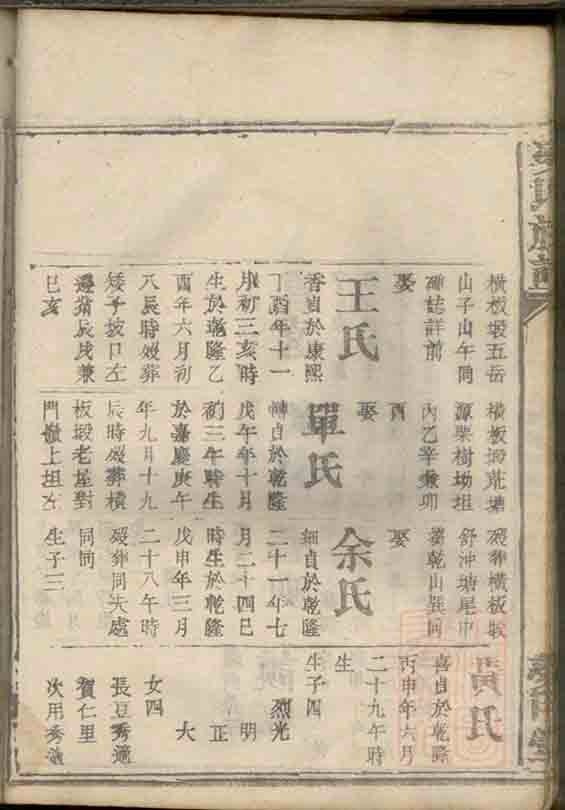 橫板塅五岳
山子山午同
碑誌詳前
娶
王氏
香貞於康熙
丁酉年十一
月初三亥時
生於乾隆乙
酉年六月初
八辰時歿葬
矮子坡口左
邊辰戌兼
巳亥
橫板塅荒塘
源栗樹坳坦
丙乙辛卯
酉
娶
單氏
貞於乾隆
戊午年十月
初三午時生
於嘉慶庚午
年九月十九
辰時歿葬橫
板塅老屋對
門嶺上坦左
歿葬橫板塅
舒沖塘尾中
乾山巽向
娶
余氏
細貞於乾隆
二十一年七
月二十四巳
時生於乾隆
戊申年三月
二十八午時
歿葬同夫處
同向
生子三
黃氏
喜貞於乾隆
丙申年六月
二十九午時
生
生子四
烈光
明
正
大
女四
長豆秀
賀仁里
次用秀